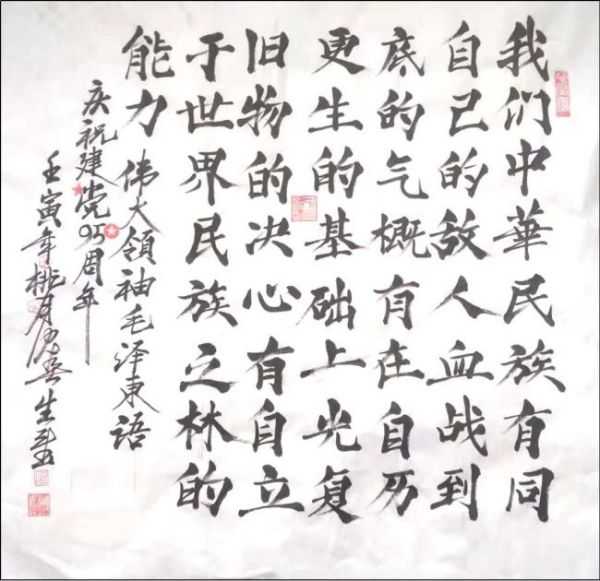 我们中華民族有同
自己的敌人血战到
底的气概有在自历
更生的基础上光复
旧物的决心有自立
于世界民族之林的
能力 伟大領袖毛泽東语
庆祝建党95周年
壬寅年桃月生